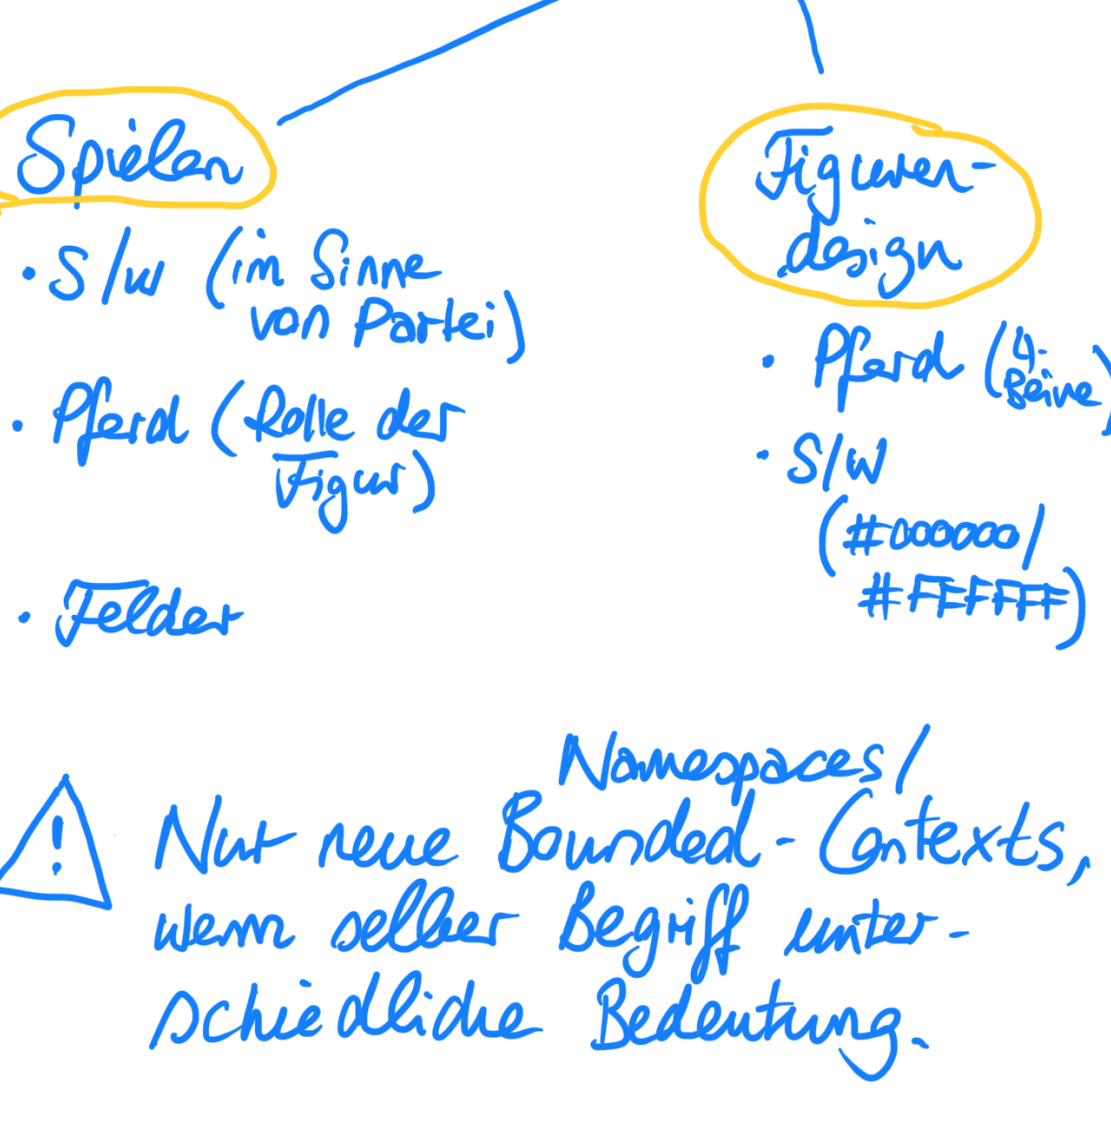 Spielen
• S/W (im Sinne
von Partei)
• Pferd (Rolle der
Figur)
• Felder
Figuren-
design
• Pferd (4-
Beine)
• S/W
(#000000/
#FFFFFF)
Namespaces/
! Nur neue Bounded-Contexts,
wenn selber Begriff unter-
schiedliche Bedeutung.